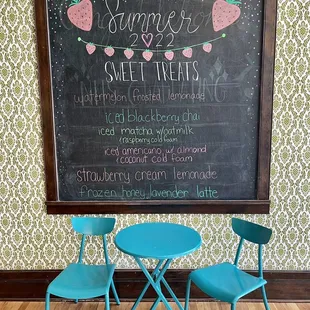 Summer
2022
SWEET TREATS
watermelon (frosted) lemonade
iced blackberry chai
iced matcha w/oatmilk
(raspberry cold foam
iced americano w/ almond
(coconut cold foam
strawberry cream lemonade
frozen honey lavender latte